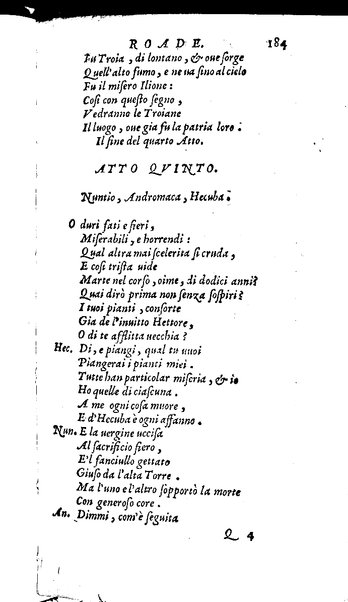 ROADE. 184
Fu Troia, di lontano, & oue sorge
Quell'alto fumo, e ne va sino al cielo
Fu il misero Ilione:
Cosi con questo segno,
Vedranno le Troiane
Il luogo, oue gia fu la patria loro.
Il fine del quarto Atto.
ATTO QVINTO.
Nuntio, Andromaca, Hecuba.
O duri fati e fieri,
Miserabili, e horrendi:
Qual altra mai scelerita si cruda,
E cosi trista uide
Marte nel corso, oime, di dodici anni?
Quai dirò prima non senza sospiri?
I tuoi pianti, consorte
Gia de l'inuitto Hettore,
O di te afflitta uecchia?
Hec. Di, e piangi, qual tu uuoi
Piangerai i pianti miei.
Tutte han particolar miseria, & io
Ho quelle di ciascuna.
A me ogni cosa muore,
E d'Hecuba è ogni affanno.
Nun. E la uergine uccisa
Al sacrificio fiero,
E'l fanciullo gettato
Giuso da l'alta Torre.
Ma l'uno e l'altro sopportò la morte
Con generoso core.
An. Dimmi, com'è seguita
Q 4